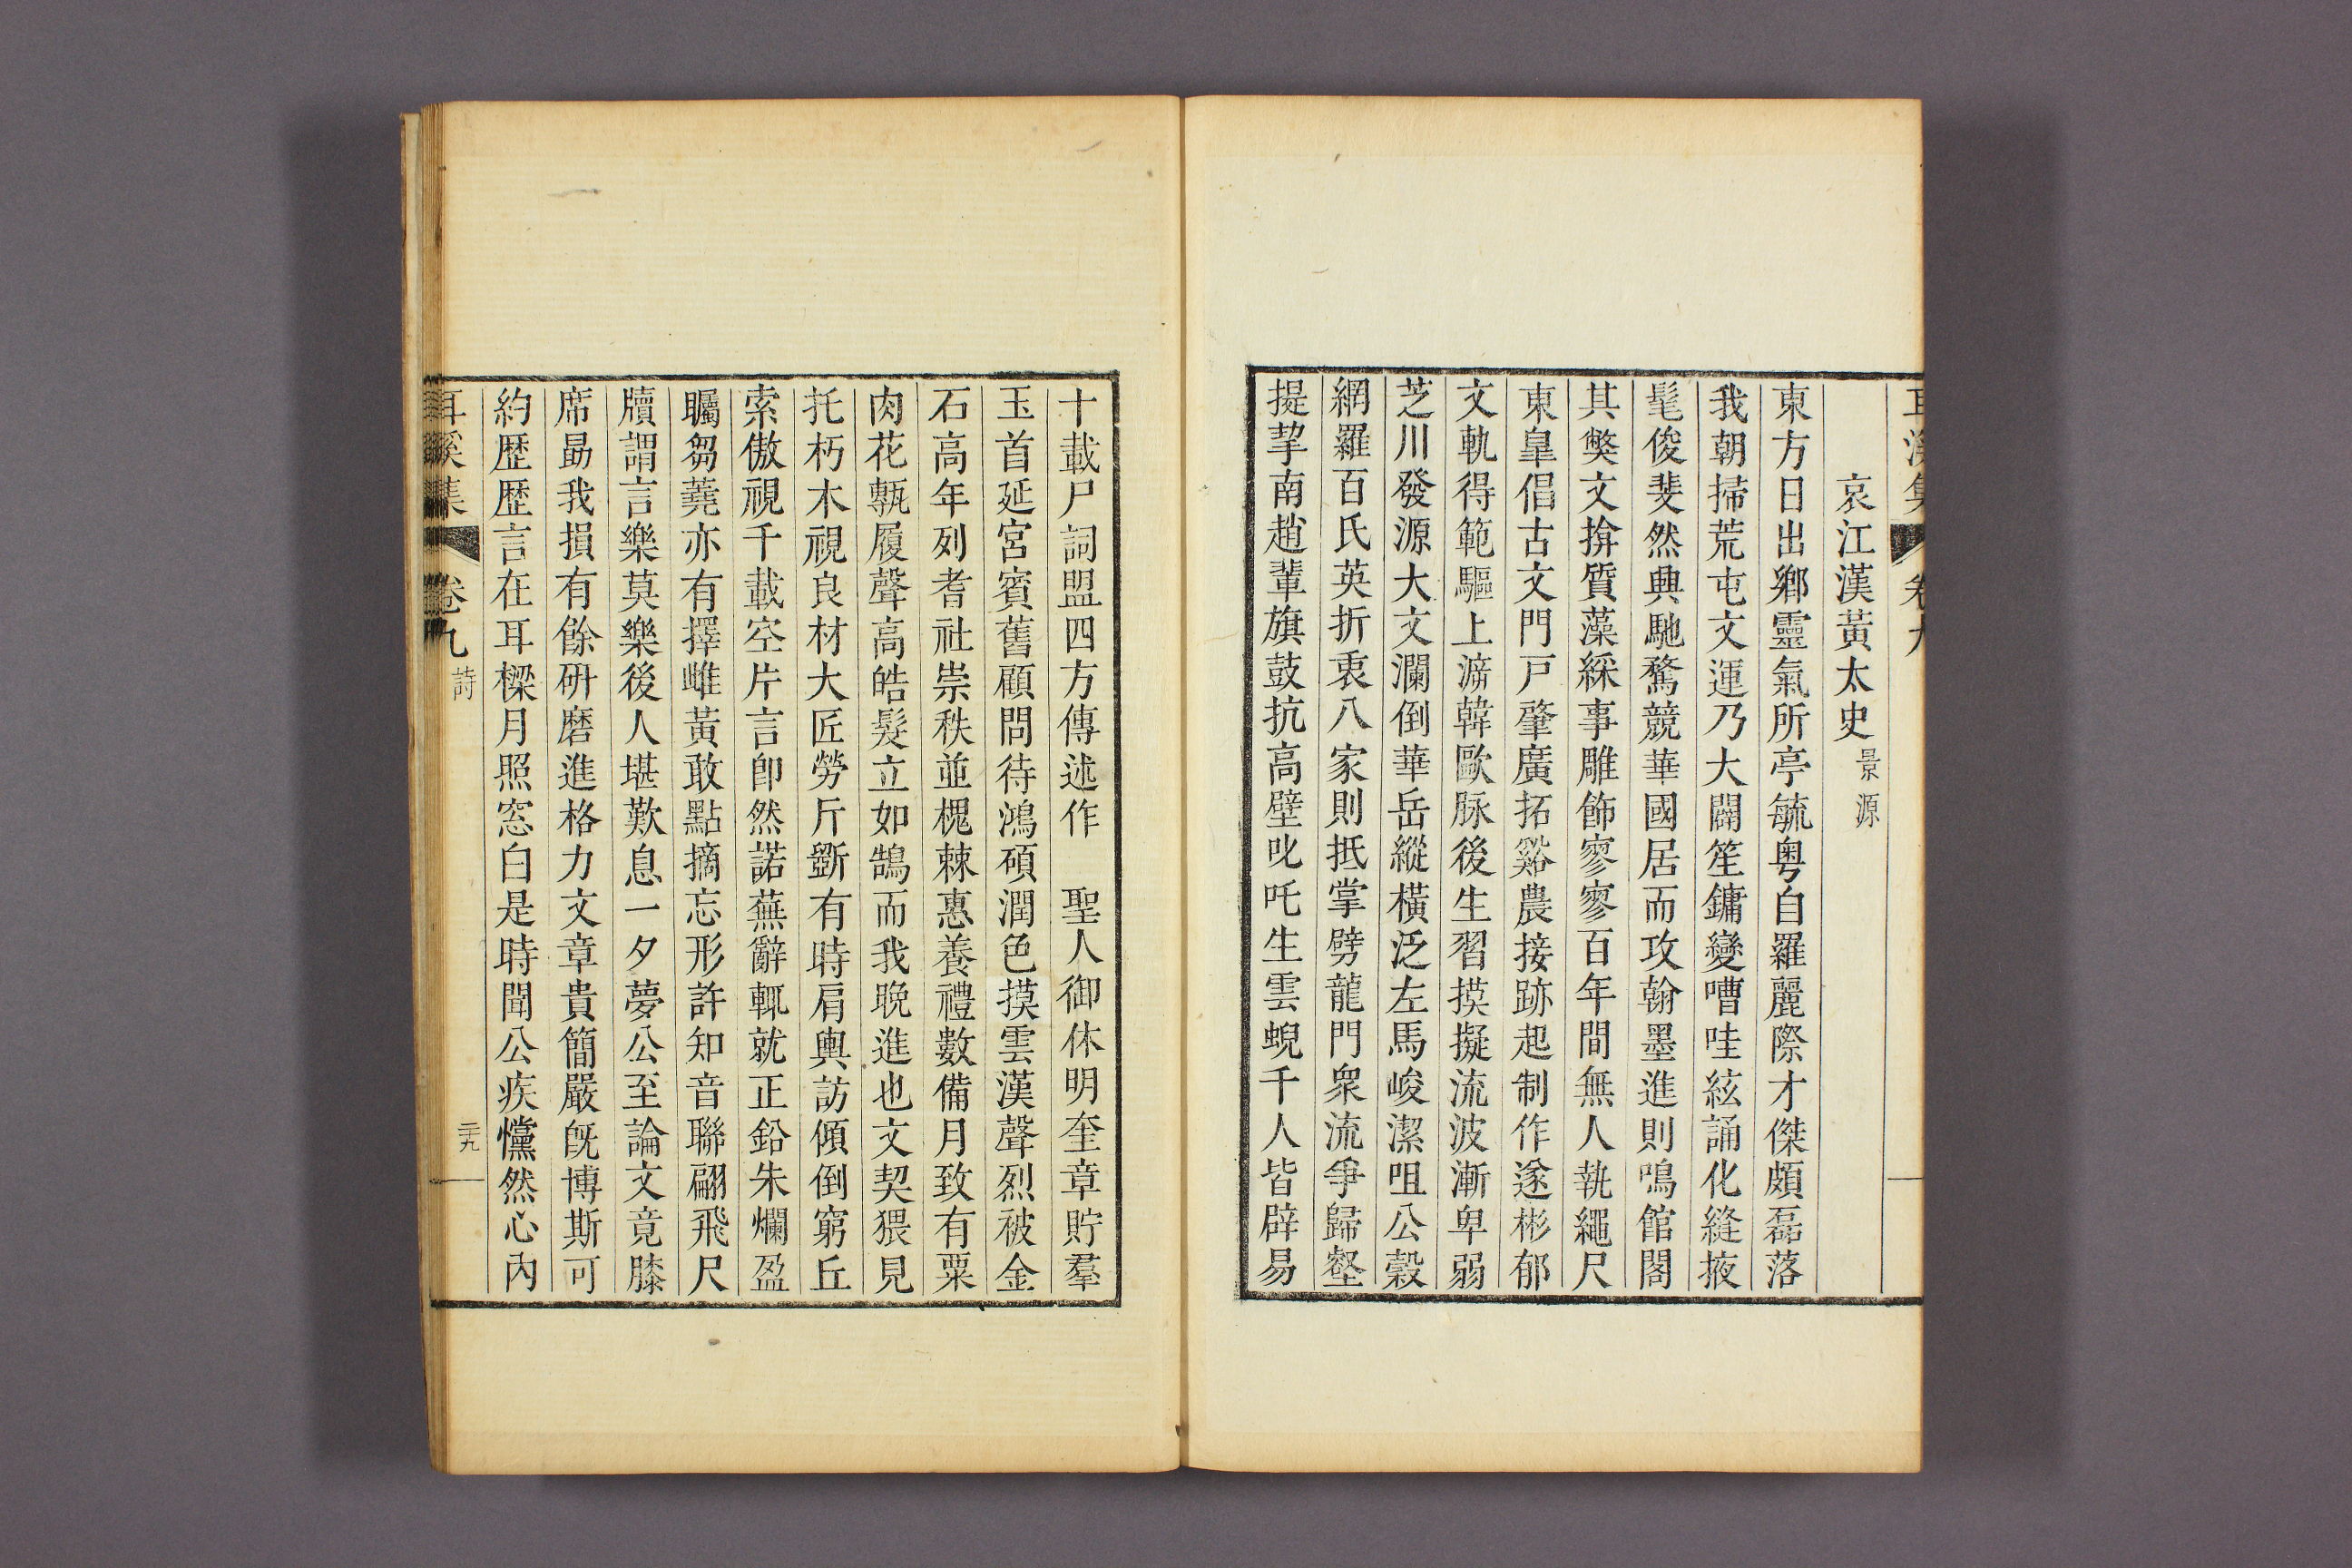 耳溪集 卷九
哀江漢黃太史景源
東方日出鄉靈氣所亭毓粤自羅麗際才傑頗磊落
我朝掃荒屯文運乃大闢笙鏞變嘈哇絃誦化縫掖
髦俊斐然興馳騖競華國居而攻翰墨進則鳴館閣
其獘文揜質藻綵事雕飾寥寥百年間無人執繩尺
東皐倡古文門戸肇廣拓谿農接跡起制作遂彬郁
文軌得範驅上㳺韓歐脉後生習摸擬流波漸卑弱
芝川發源大文瀾倒華岳縱橫泛左馬峻潔咀公糓
網羅百氏英折衷八家則抵掌劈龍門衆流爭歸壑
提挈南趙輩旗鼓抗高壁叱吒生雲蜺千人皆辟易
十載尸詞盟四方傳述作 聖人御休明奎章貯羣
玉首延宮賓舊顧問待鴻碩潤色摸雲漢聲烈被金
石高年列耆社崇秩並槐棘惠養禮數備月致有粟
肉花甎履聲高皓髮立如鵠而我晩進也文契猥見
托朽木視良材大匠勞斤斲有時肩輿訪傾倒窮丘
索傲視千載空片言卽然諾蕪辭輒就正鉛朱爛盈
矚芻蕘亦有擇雌黃敢點摘忘形許知音聯翩飛尺
牘謂言樂莫樂後人堪歎息一夕夢公至論文竟膝
席勗我損有餘硏磨進格力文章貴簡嚴旣博斯可
約歷歷言在耳樑月照窓白是時聞公疾戃然心內
耳溪集 卷九 詩 二十九